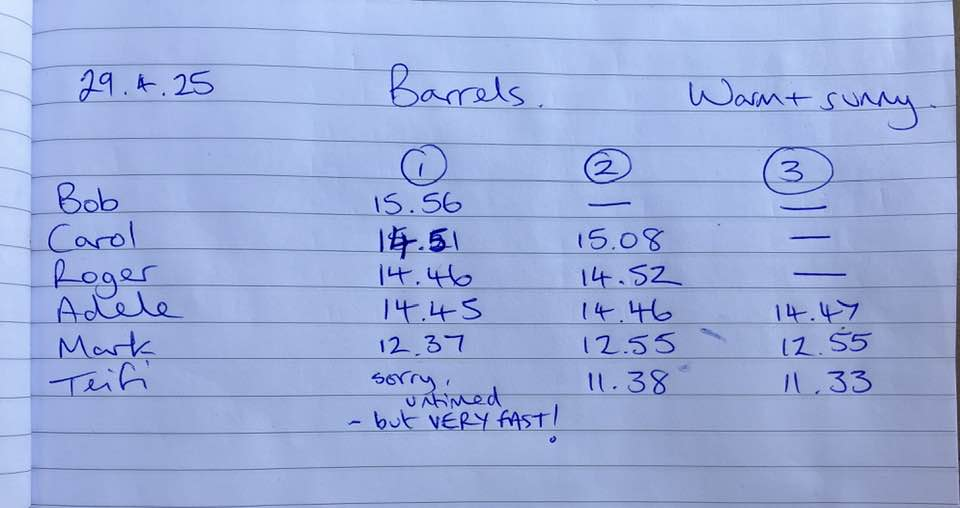 29.4.25 Barrels. Warm + sunny.
① ② ③
Bob 15.56 — —
Carol 14.51 15.08 —
Roger 14.46 14.52 —
Adele 14.45 14.46 14.47
Mark 12.37 12.55 12.55
Teifi sorry, 11.38 11.33
untimed
- but VERY FAST!